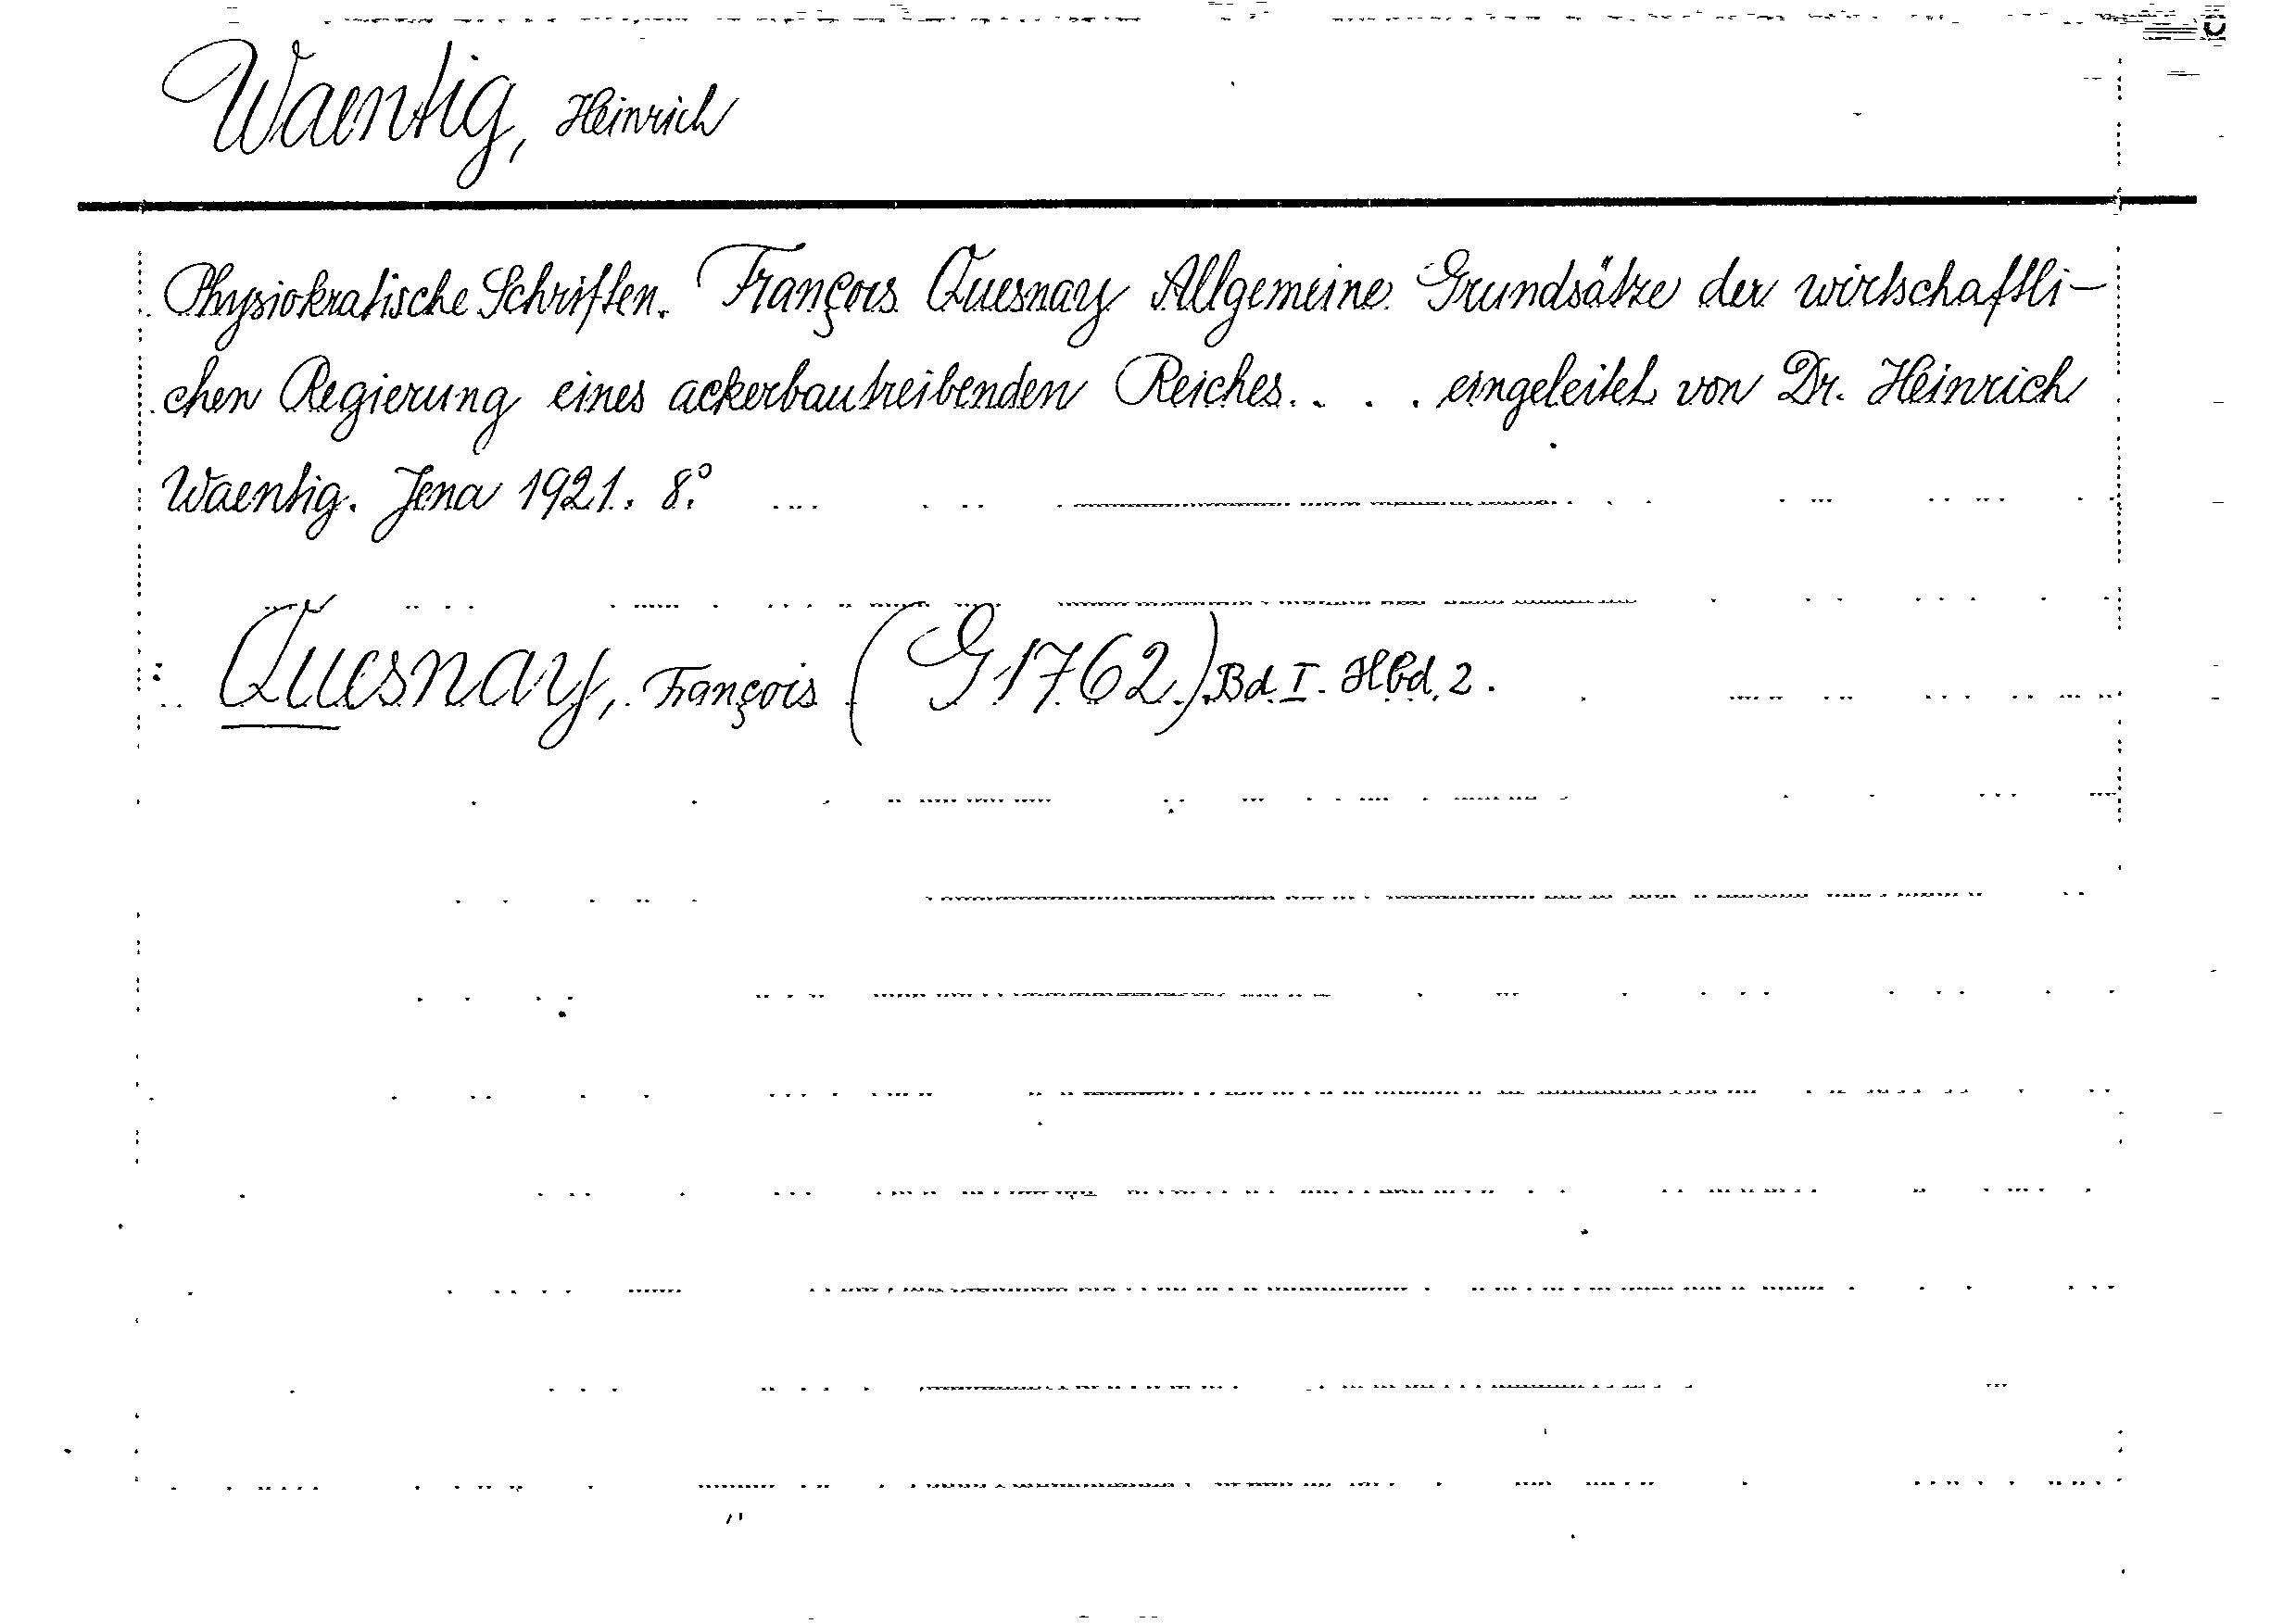 Waentig, Heinrich
Physiokratische Schriften. François Quesnay Allgemeine Grundsätze der wirtschaftli-
chen Regierung eines ackerbautreibenden Reiches. . . . eingeleitet von Dr. Heinrich
Waentig. Jena 1921. 8°.
Quesnay, François (G 1762.) Bd. I. Hbd. 2.